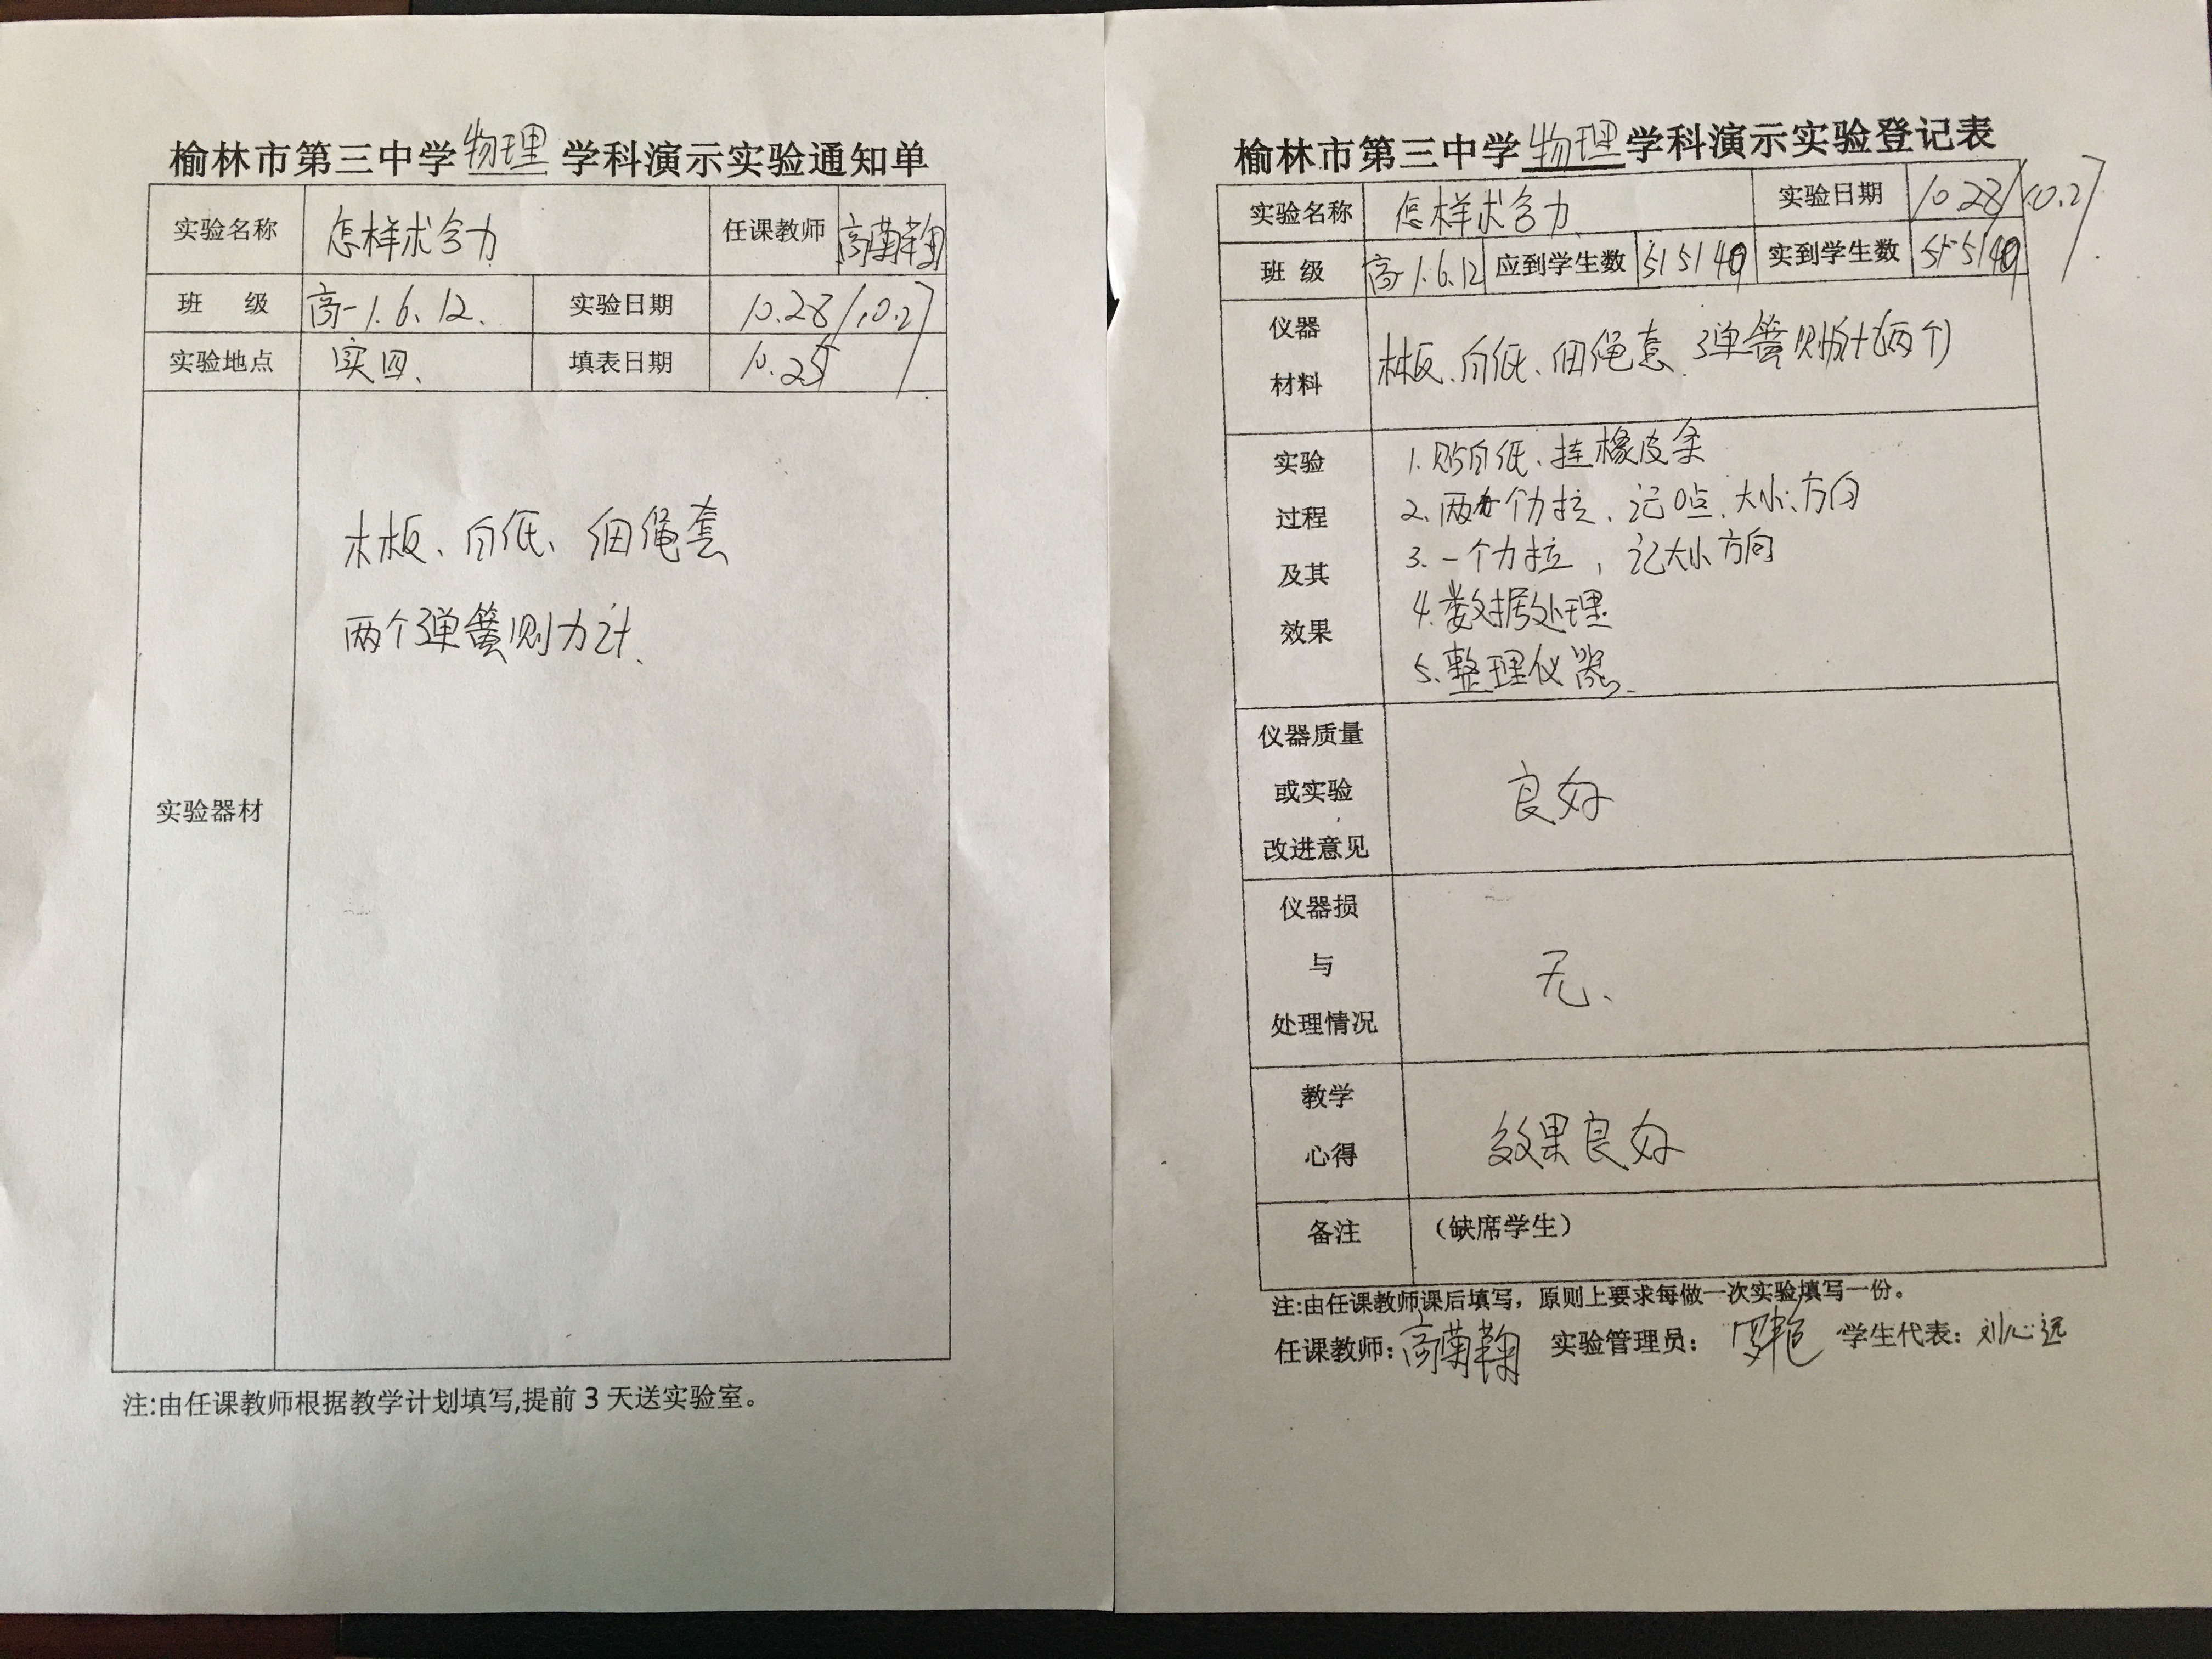 榆林市第三中学物理学科演示实验通知单
实验名称 怎样求合力 任课教师 高菊鞠
班 级 高一1.6.12. 实验日期 10.28/10.27
实验地点 实四、 填表日期 10.25
实验器材
木板、白纸、细绳套
两个弹簧测力计、
注:由任课教师根据教学计划填写,提前3天送实验室。
榆林市第三中学物理学科演示实验登记表
实验名称 怎样求合力 实验日期 10.28/10.27
班 级 高一1.6.12 应到学生数 51 51 49 实到学生数 51 51 49
仪器
材料
木板、白纸、细绳套、弹簧测力计(两个)
实验
过程
及其
效果
1.贴白纸、挂橡皮条
2.两个力拉、记O点、大小、方向
3.一个力拉,记大小方向
4.数据处理
5.整理仪器、
仪器质量
或实验
改进意见
良好
仪器损
与
处理情况
无、
教学
心得
效果良好
备注 (缺席学生)
注:由任课教师课后填写,原则上要求每做一次实验填写一份。
任课教师:高菊鞠 实验管理员: 罗艳 学生代表:刘心远